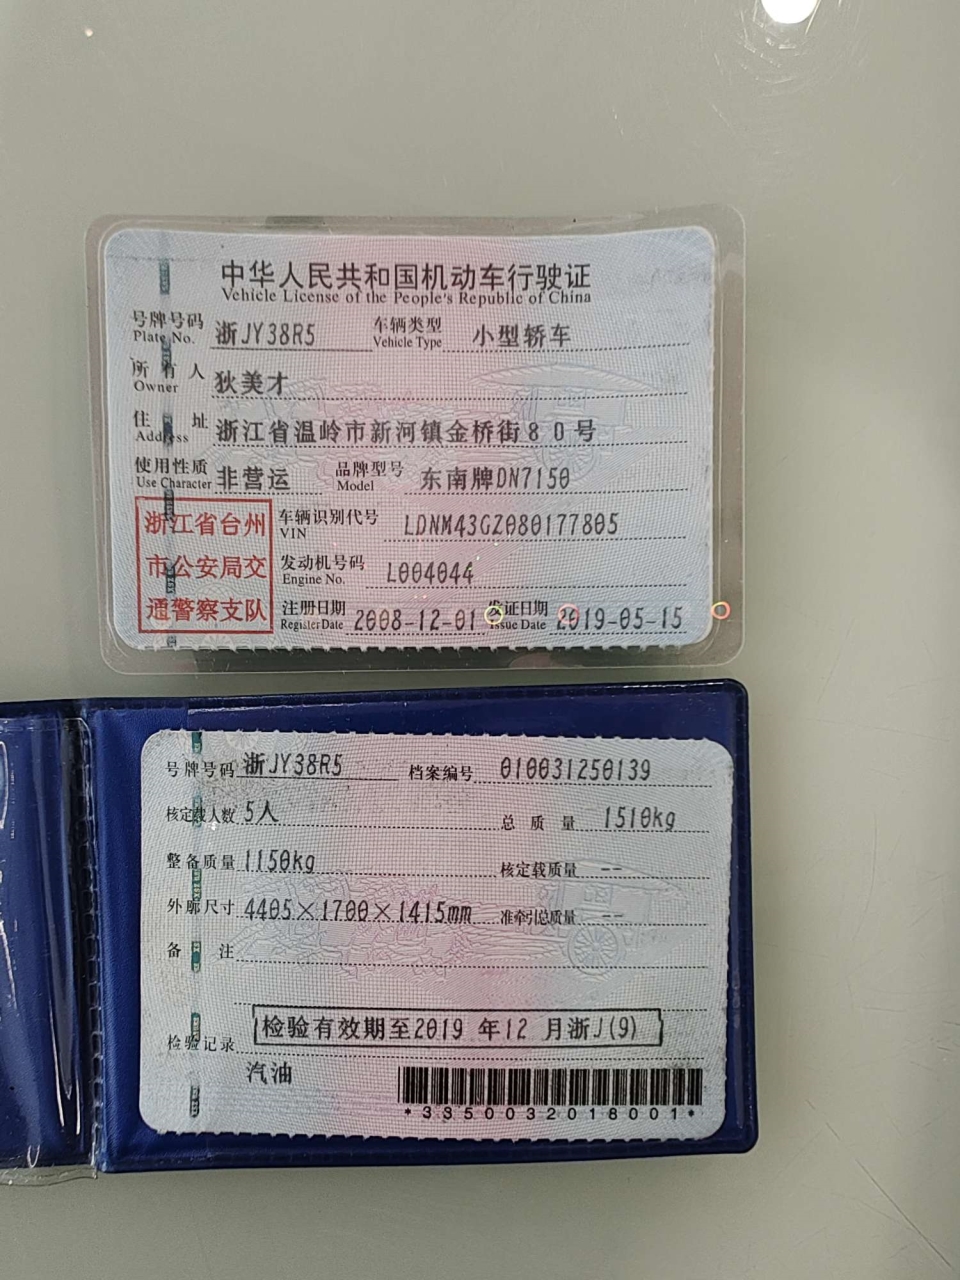 中华人民共和国机动车行驶证
Vehicle License of the People's Republic of China
号牌号码 Plate No. 浙JY38R5 车辆类型 Vehicle Type 小型轿车
所有人 Owner 狄美才
住址 Address 浙江省温岭市新河镇金桥街80号
使用性质 Use Character 非营运 品牌型号 Model 东南牌DN7150
浙江省台州
市公安局交
通警察支队
车辆识别代号 VIN LDNM43GZ080177805
发动机号码 Engine No. L004044
注册日期 Register Date 2008-12-01 发证日期 Issue Date 2019-05-15
号牌号码 浙JY38R5 档案编号 010031250139
核定载人数 5人 总质量 1510kg
整备质量 1150kg 核定载质量 --
外廓尺寸 4405×1700×1415mm 准牵引总质量 --
备注
检验记录 检验有效期至2019年12月浙J(9)
汽油
*3350032018001*